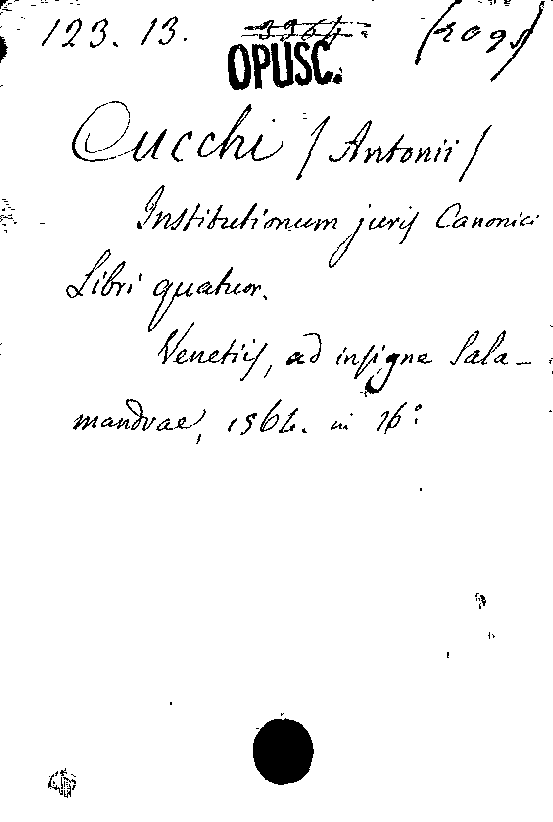 123. 13.
OPUSC.
Cucchi /Antonii/
Institutionum juris Canonici
Libri quatuor.
Venetiis, ad insigne Sala-
mandrae, 1564. in 16°